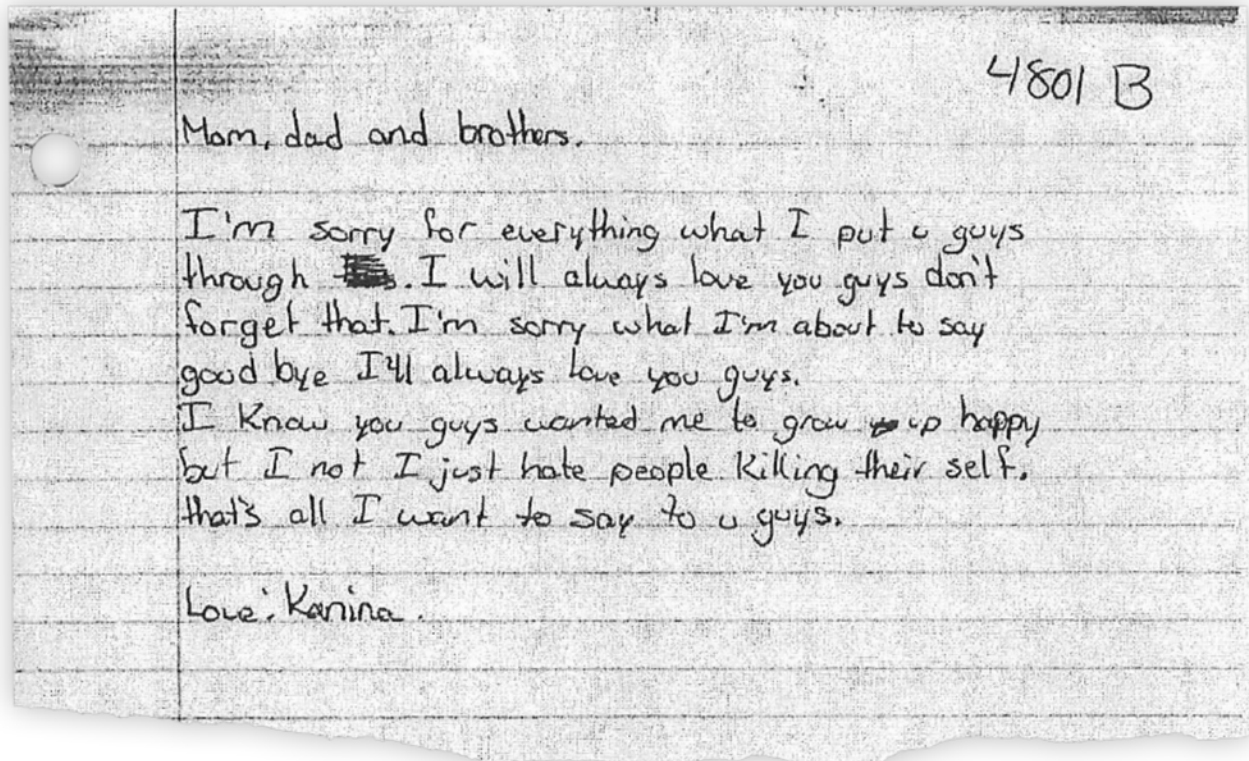 4801 B
Mom, dad and brothers.
I'm sorry for everything what I put u guys
through . I will always love you guys don't
forget that. I'm sorry what I'm about to say
good bye I'll always love you guys.
I know you guys wanted me to grow up happy
but I not I just hate people killing their self.
that's all I want to say to u guys.
Love: Kanina.